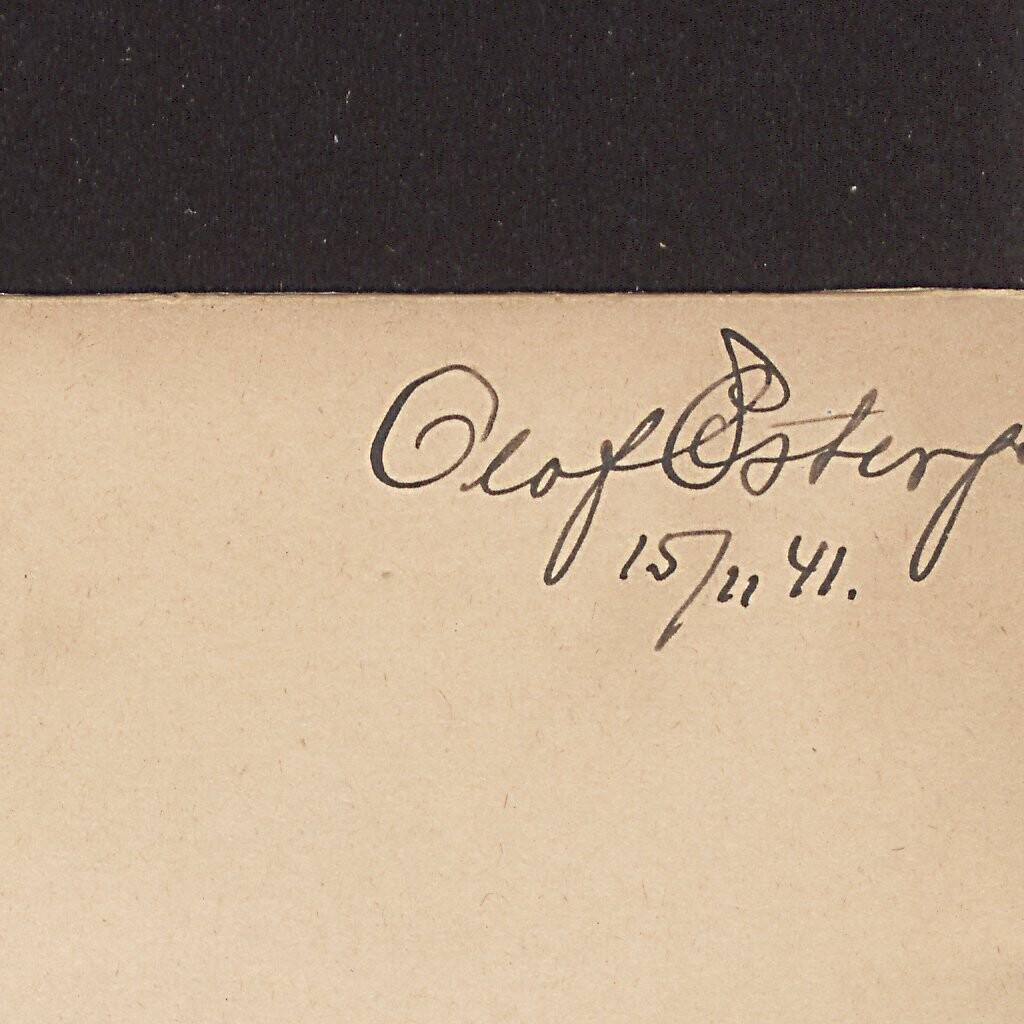 Olof Österg
15/11 41.